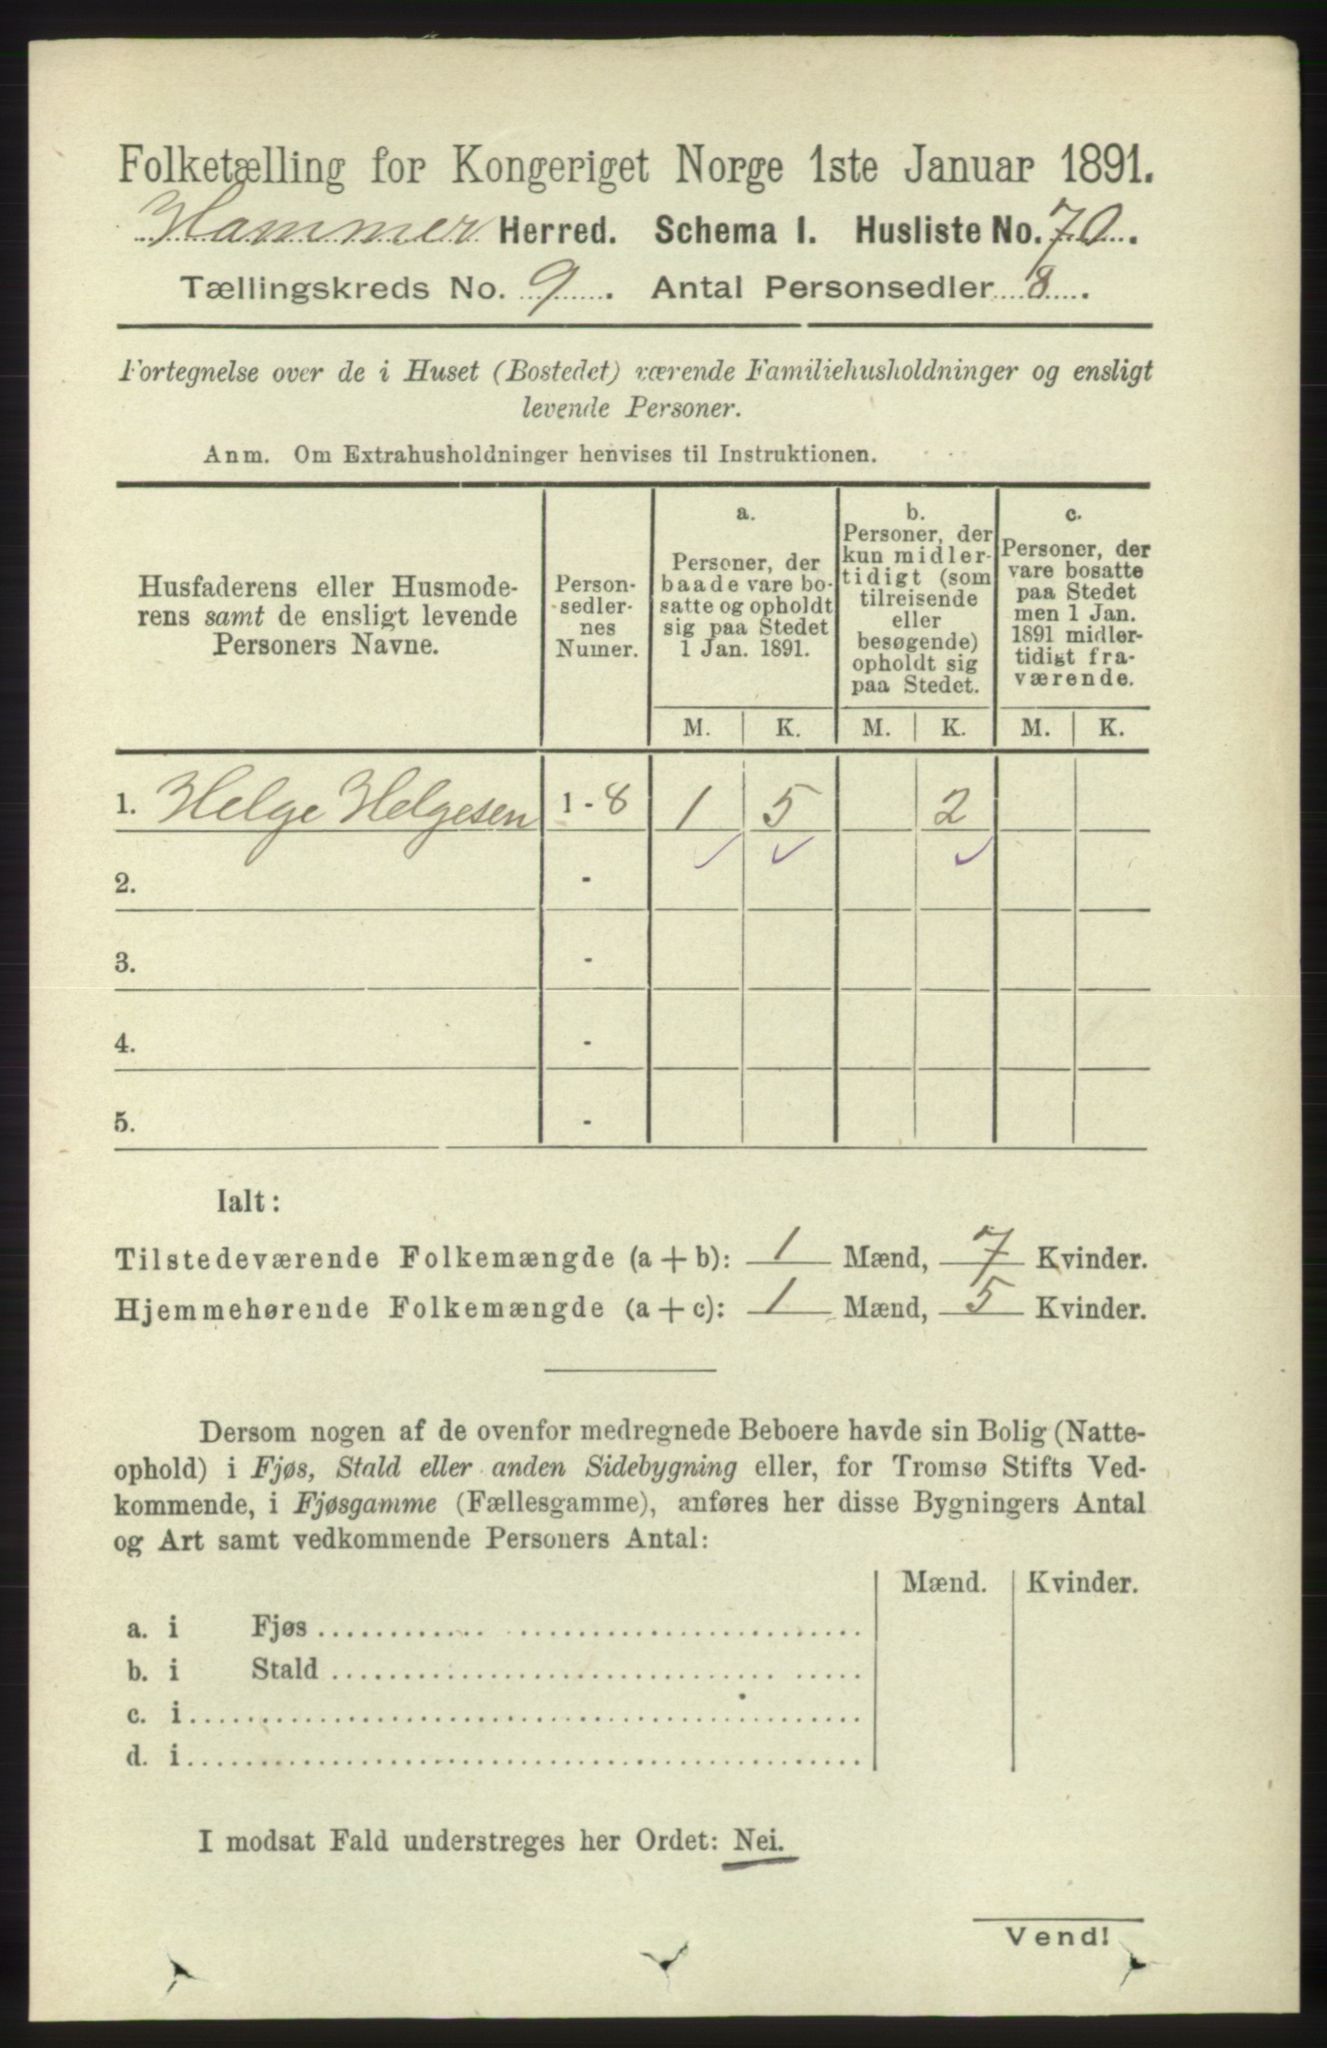 Folketælling for Kongeriget Norge 1ste Januar 1891.
Hammer Herred. Schema I. Husliste No. 70.
Tællingskreds No. 9. Antal Personsedler 8.
Fortegnelse over de i Huset (Bostedet) værende Familiehusholdninger og ensligt
levende Personer.
Anm. Om Extrahusholdninger henvises til Instruktionen.
Husfaderens eller Husmode-
rens samt de ensligt levende
Personers Navne.
Person-
sedler-
nes
Numer.
a.
Personer, der
baade vare bo-
satte og opholdt
sig paa Stedet
1 Jan. 1891.
b.
Personer, der
kun midler-
tidigt (som
tilreisende
eller
besøgende)
opholdt sig
paa Stedet.
c.
Personer, der
vare bosatte
paa Stedet
men 1 Jan.
1891 midler-
tidigt fra-
værende.
M. K. M. K. M. K.
1. Helge Helgesen 1 - 8 1 5 2
2. -
3. -
4. -
5. -
Ialt:
Tilstedeværende Folkemængde (a + b): 1 Mænd, 7 Kvinder.
Hjemmehørende Folkemængde (a + c): 1 Mænd, 5 Kvinder.
Dersom nogen af de ovenfor medregnede Beboere havde sin Bolig (Natte-
ophold) i Fjøs, Stald eller anden Sidebygning eller, for Tromsø Stifts Ved-
kommende, i Fjøsgamme (Fællesgamme), anføres her disse Bygningers Antal
og Art samt vedkommende Personers Antal:
Mænd. Kvinder.
a. i Fjøs
b. i Stald
c. i
d. i
I modsat Fald understreges her Ordet: Nei.
Vend!